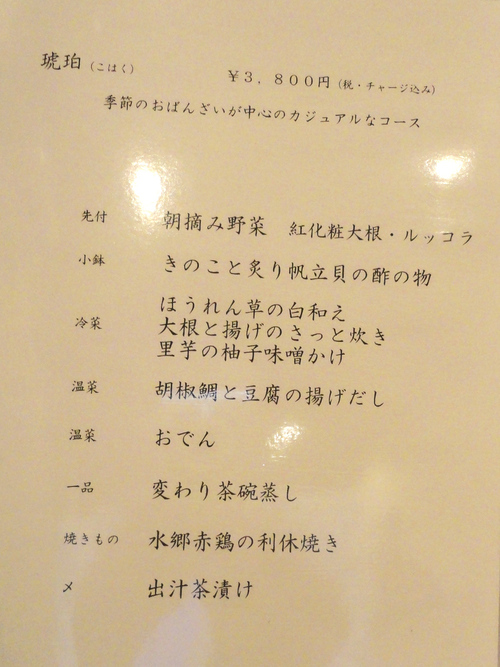 琥珀（こはく）
￥３，８００円（税・チャージ込み）
季節のおばんざいが中心のカジュアルなコース
先付 朝摘み野菜 紅化粧大根・ルッコラ
小鉢 きのこと炙り帆立貝の酢の物
ほうれん草の白和え
冷菜 大根と揚げのさっと炊き
里芋の柚子味噌かけ
温菜 胡椒鯛と豆腐の揚げだし
温菜 おでん
一品 変わり茶碗蒸し
焼きもの 水郷赤鶏の利休焼き
〆 出汁茶漬け